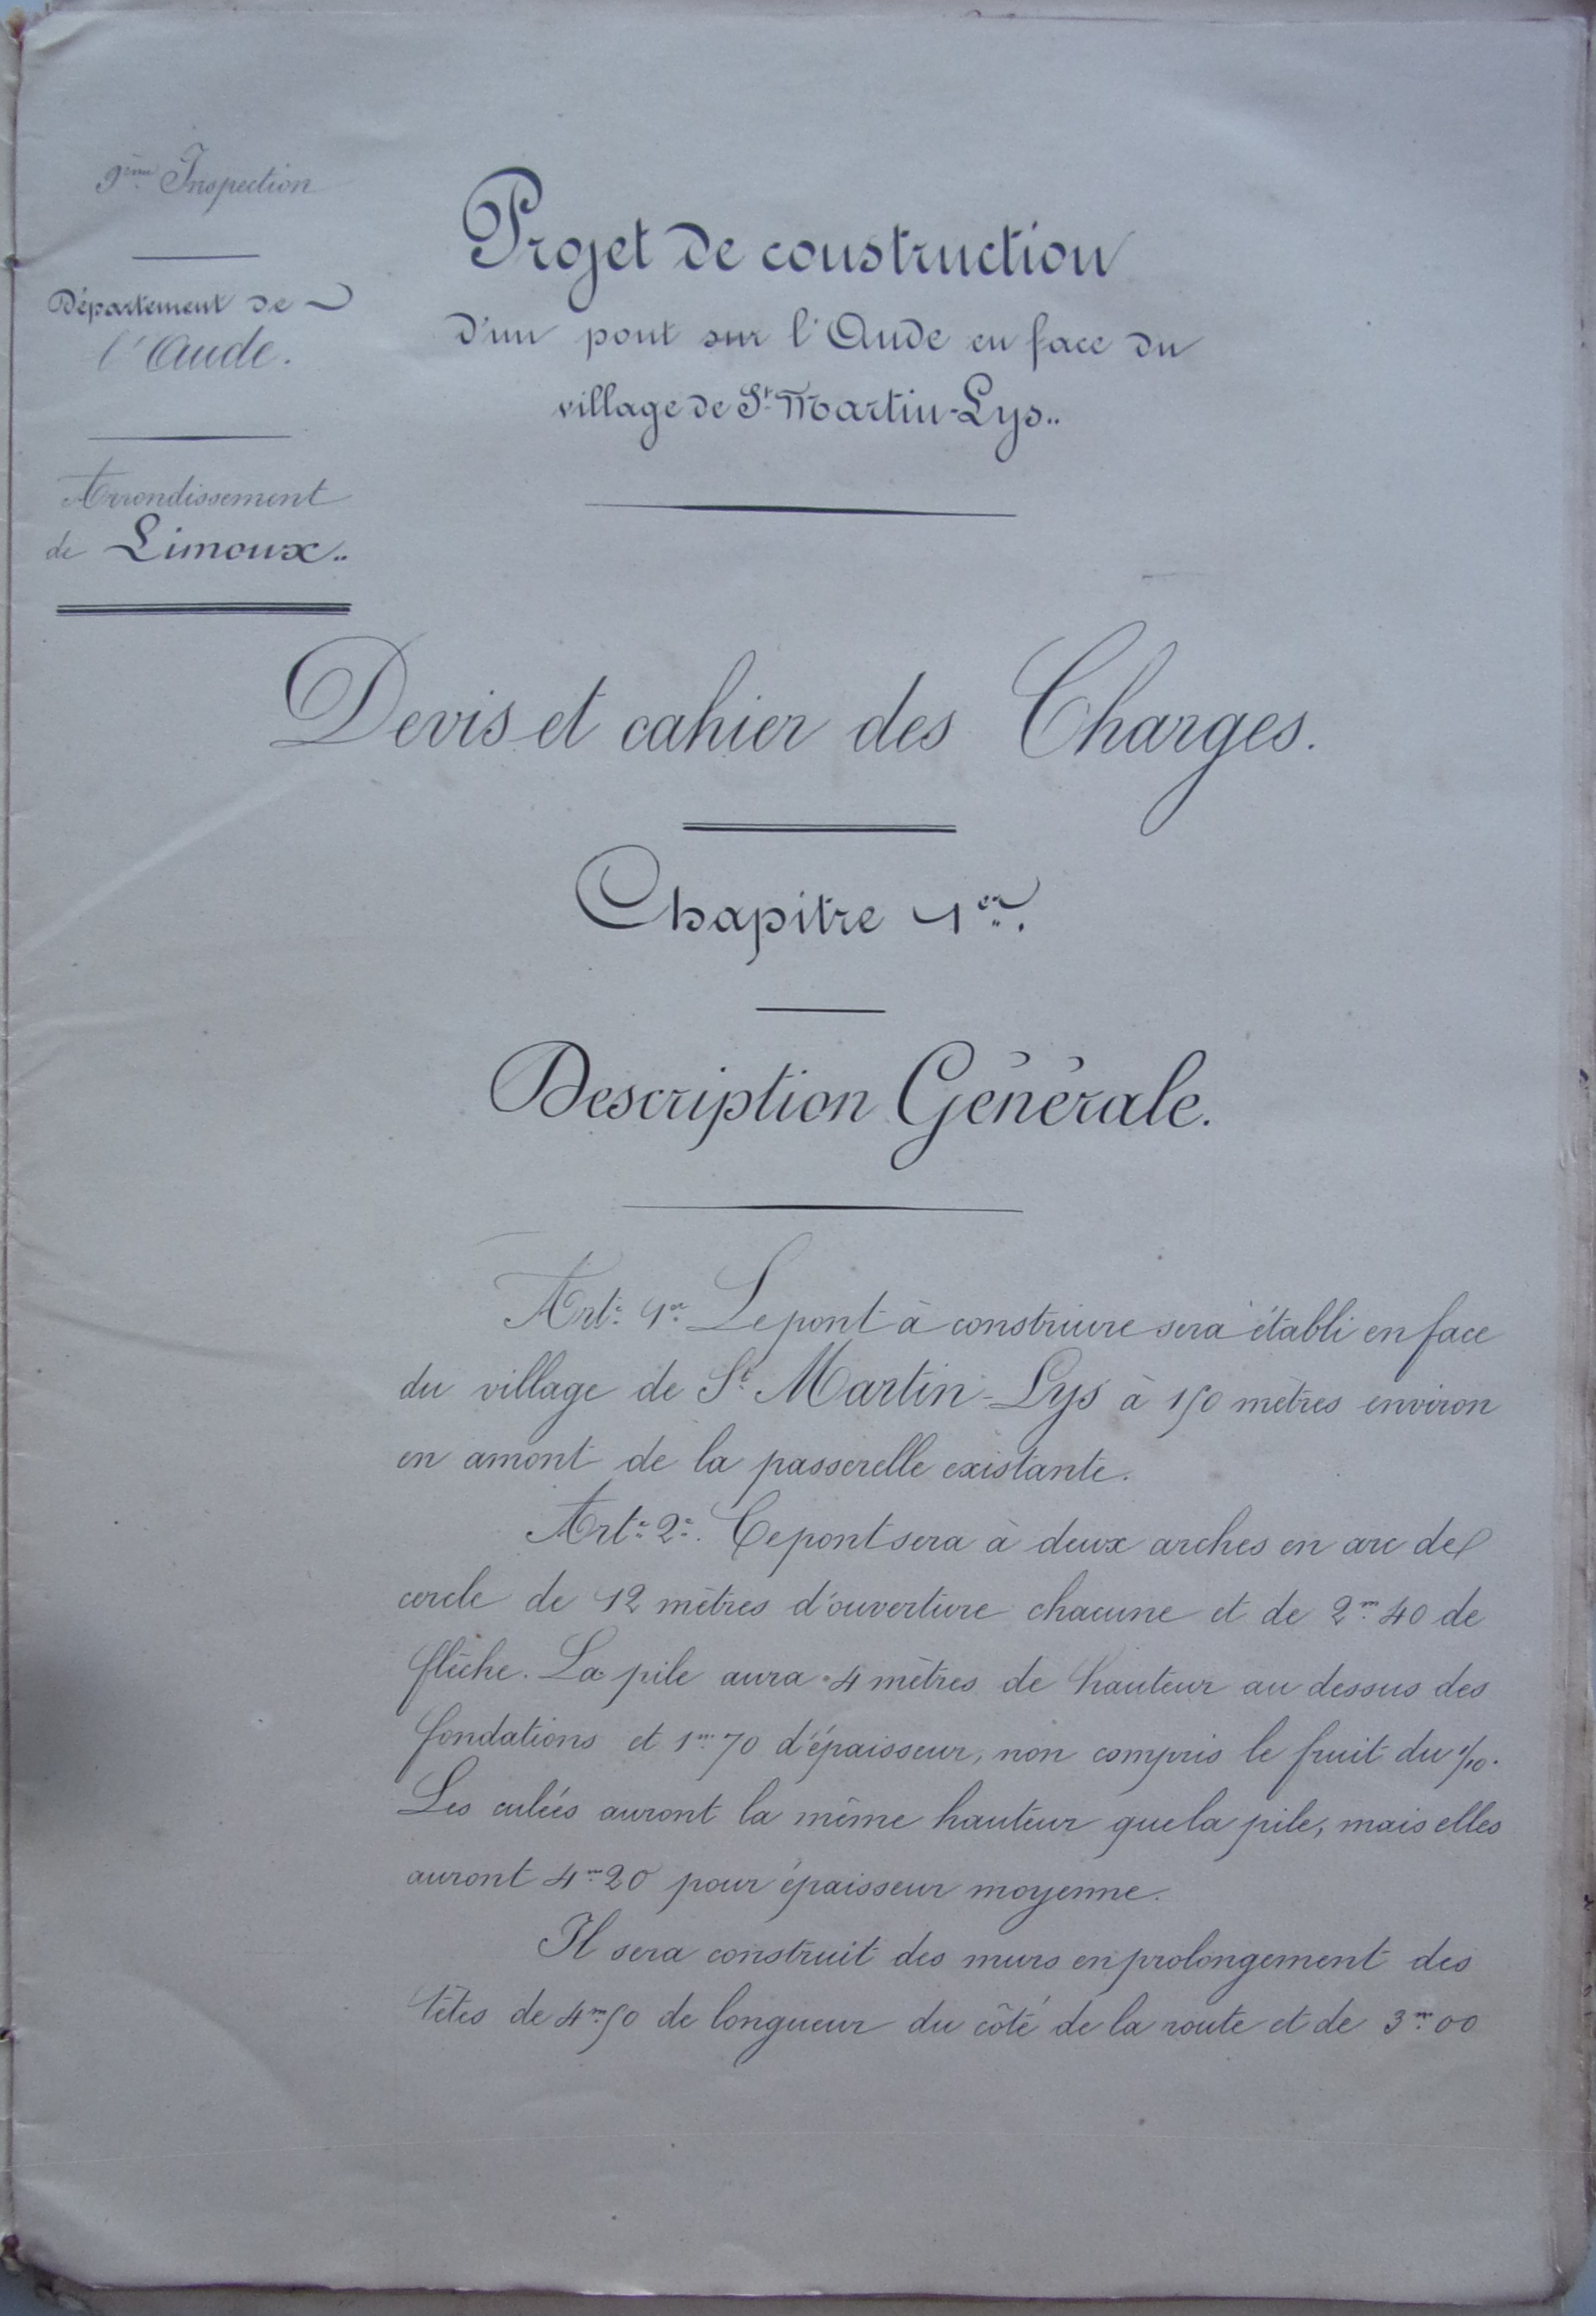 9ème Inspection
Département de
l'Aude.
Arrondissement
de Limoux..
Projet de construction
d'un pont sur l'Aude en face du
village de St Martin-Lys..
Devis et cahier des Charges.
Chapitre 1er.
Description Générale.
Art. 1er Le pont à construire sera établi en face
du village de St Martin-Lys à 150 mètres environ
en amont de la passerelle existante.
Art. 2e. Ce pont sera à deux arches en arc de
cercle de 12 mètres d'ouverture chacune et de 2m 40 de
flèche. La pile aura 4 mètres de hauteur au dessus des
fondations et 1m 70 d'épaisseur, non compris le fruit du 1/10.
Les culées auront la même hauteur que la pile, mais elles
auront 4m 20 pour épaisseur moyenne.
Il sera construit des murs en prolongement des
têtes de 4m 50 de longueur du côté de la route et de 3m 00